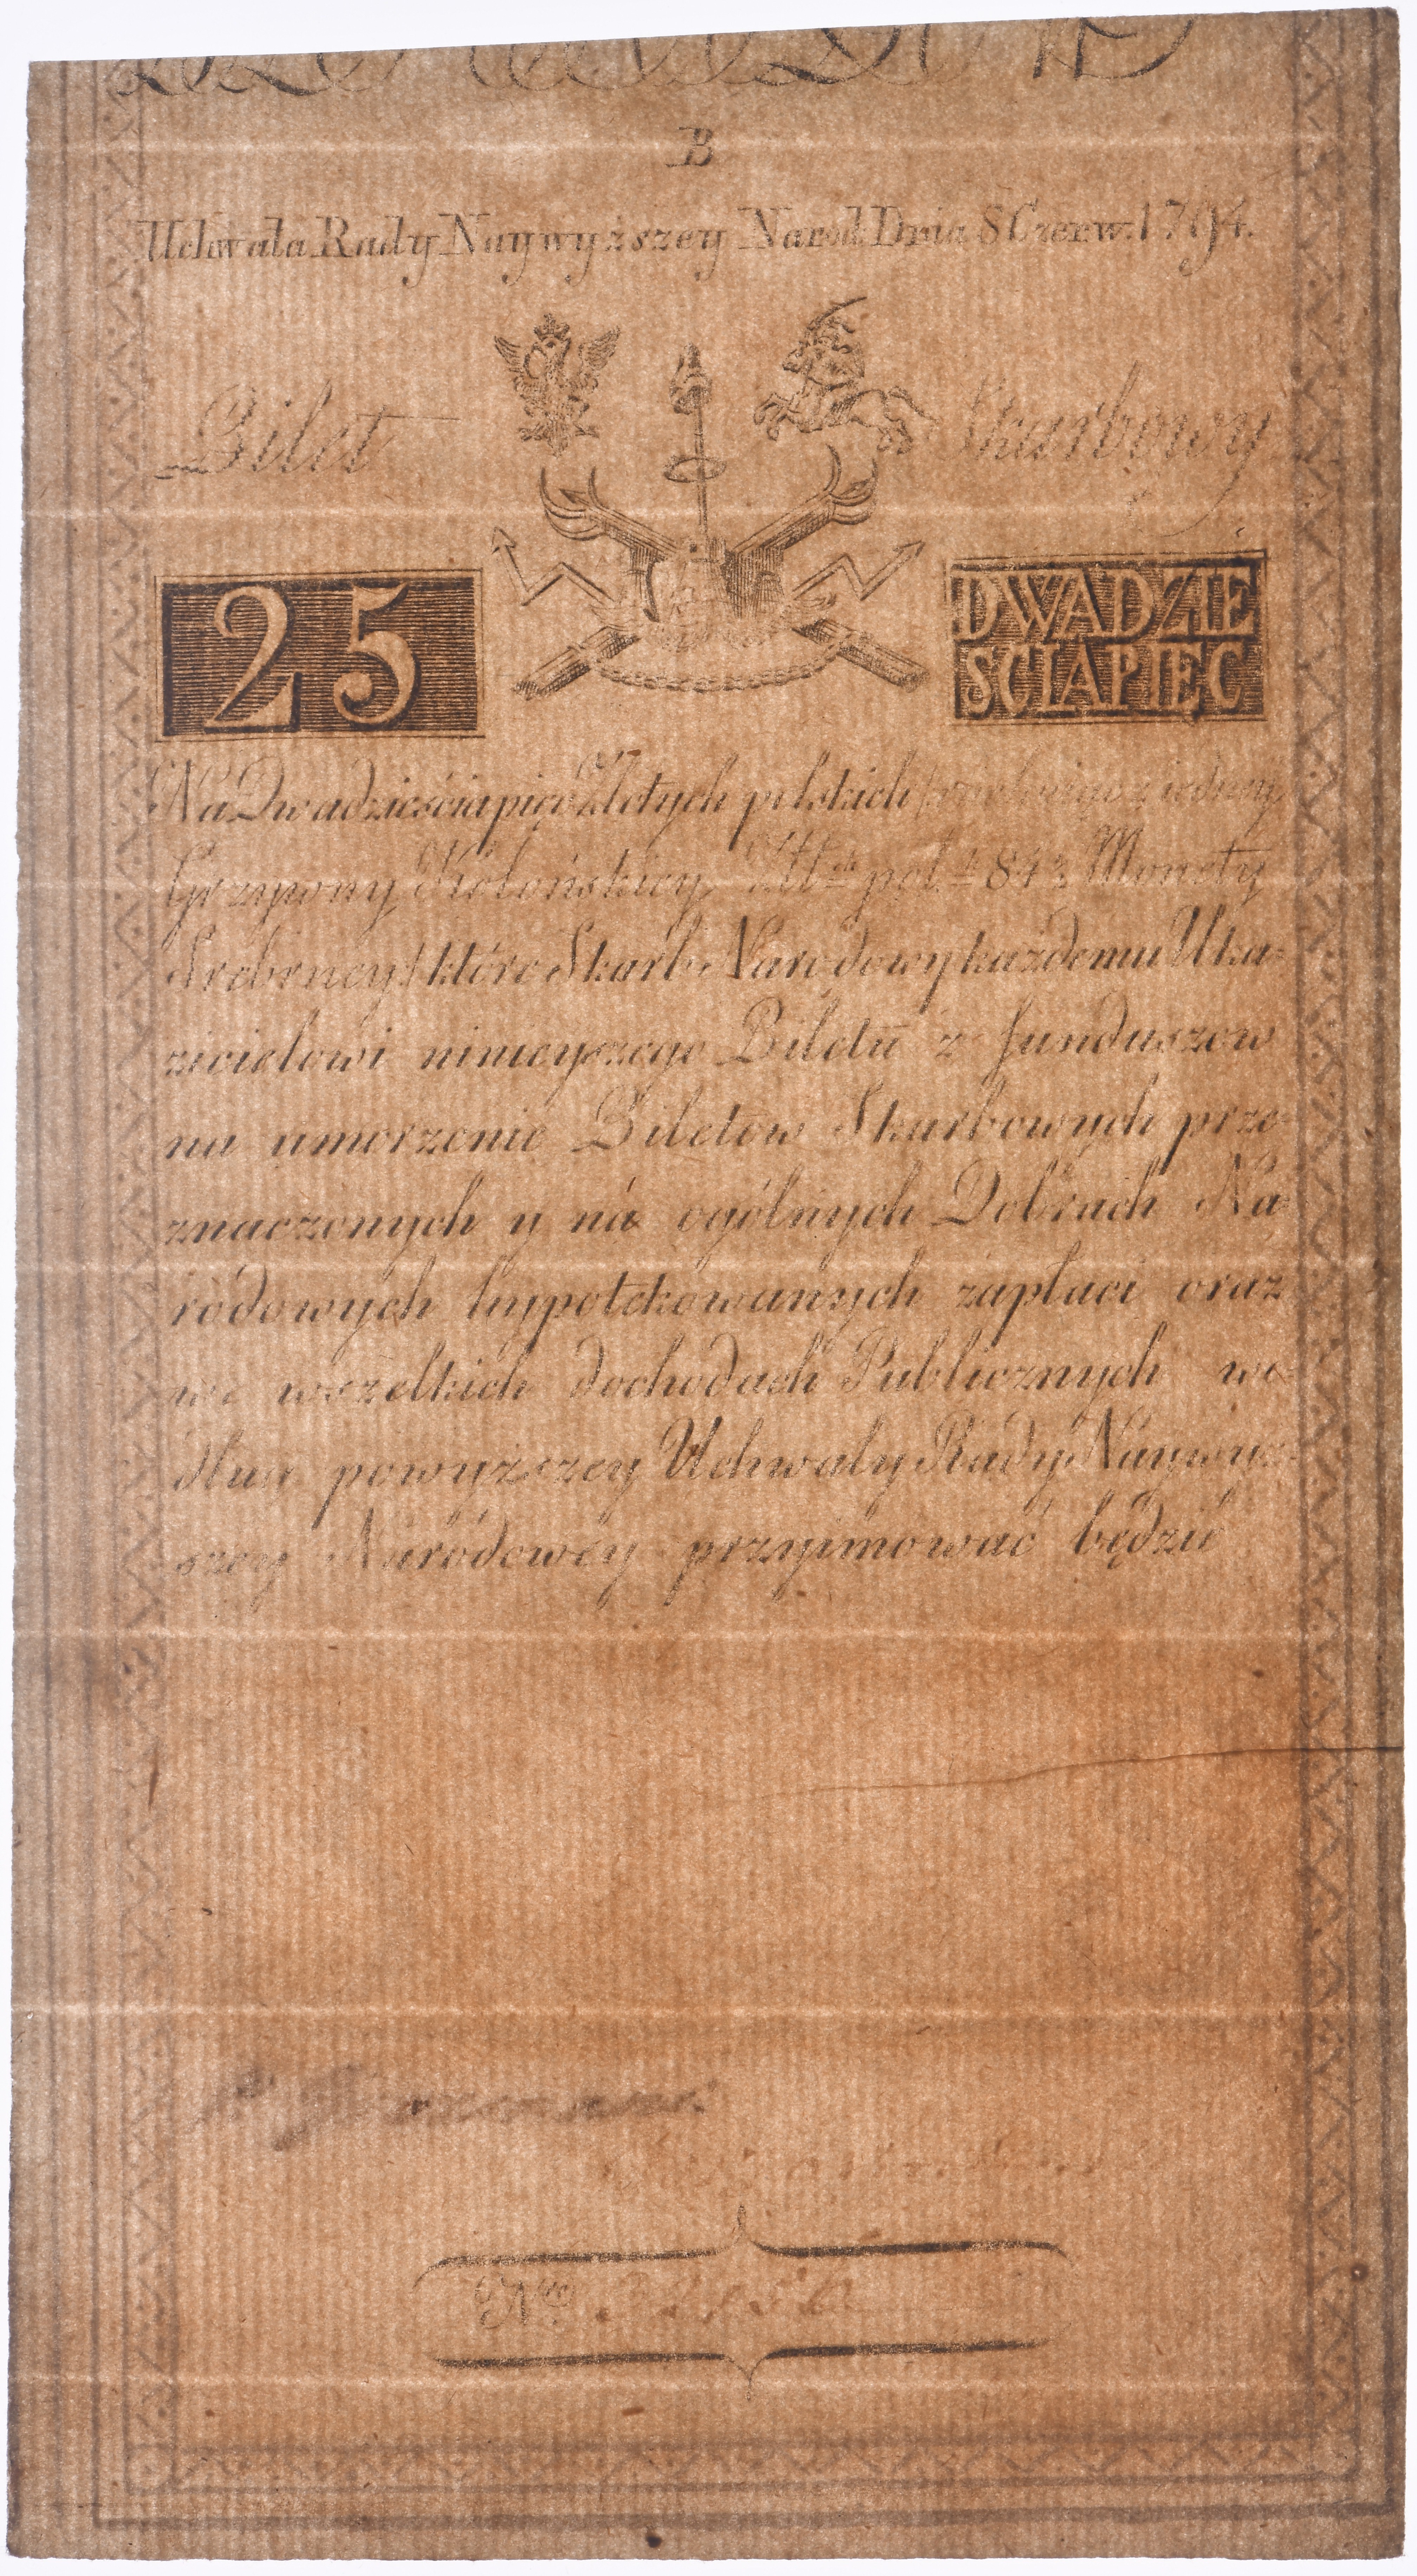 B
Uchwała Rady Naywyższey Narod: Dnia 8 Czerw: 1794.
Bilet Skarbowy
25
DWADZIE
SCIAPIEC
Na Dwadzieściapięć Złotych polskich z iedney
Grzywny Kolońskiey pol. 84½ Monety
Srebrney) które Skarb Narodowy każdemu Uka-
zicielowi ninieyszego Biletu z funduszow
na umorzenie Biletow Skarbowych prze-
znaczonych y ná ogólnych Dobrach Na-
rodowych hypotekowanych zapłaci oraz
we wszelkich dochodach Publicznych we-
dług powyższey Uchwały Rady Naywyż-
szey Narodowey przyimować będzie
Nro